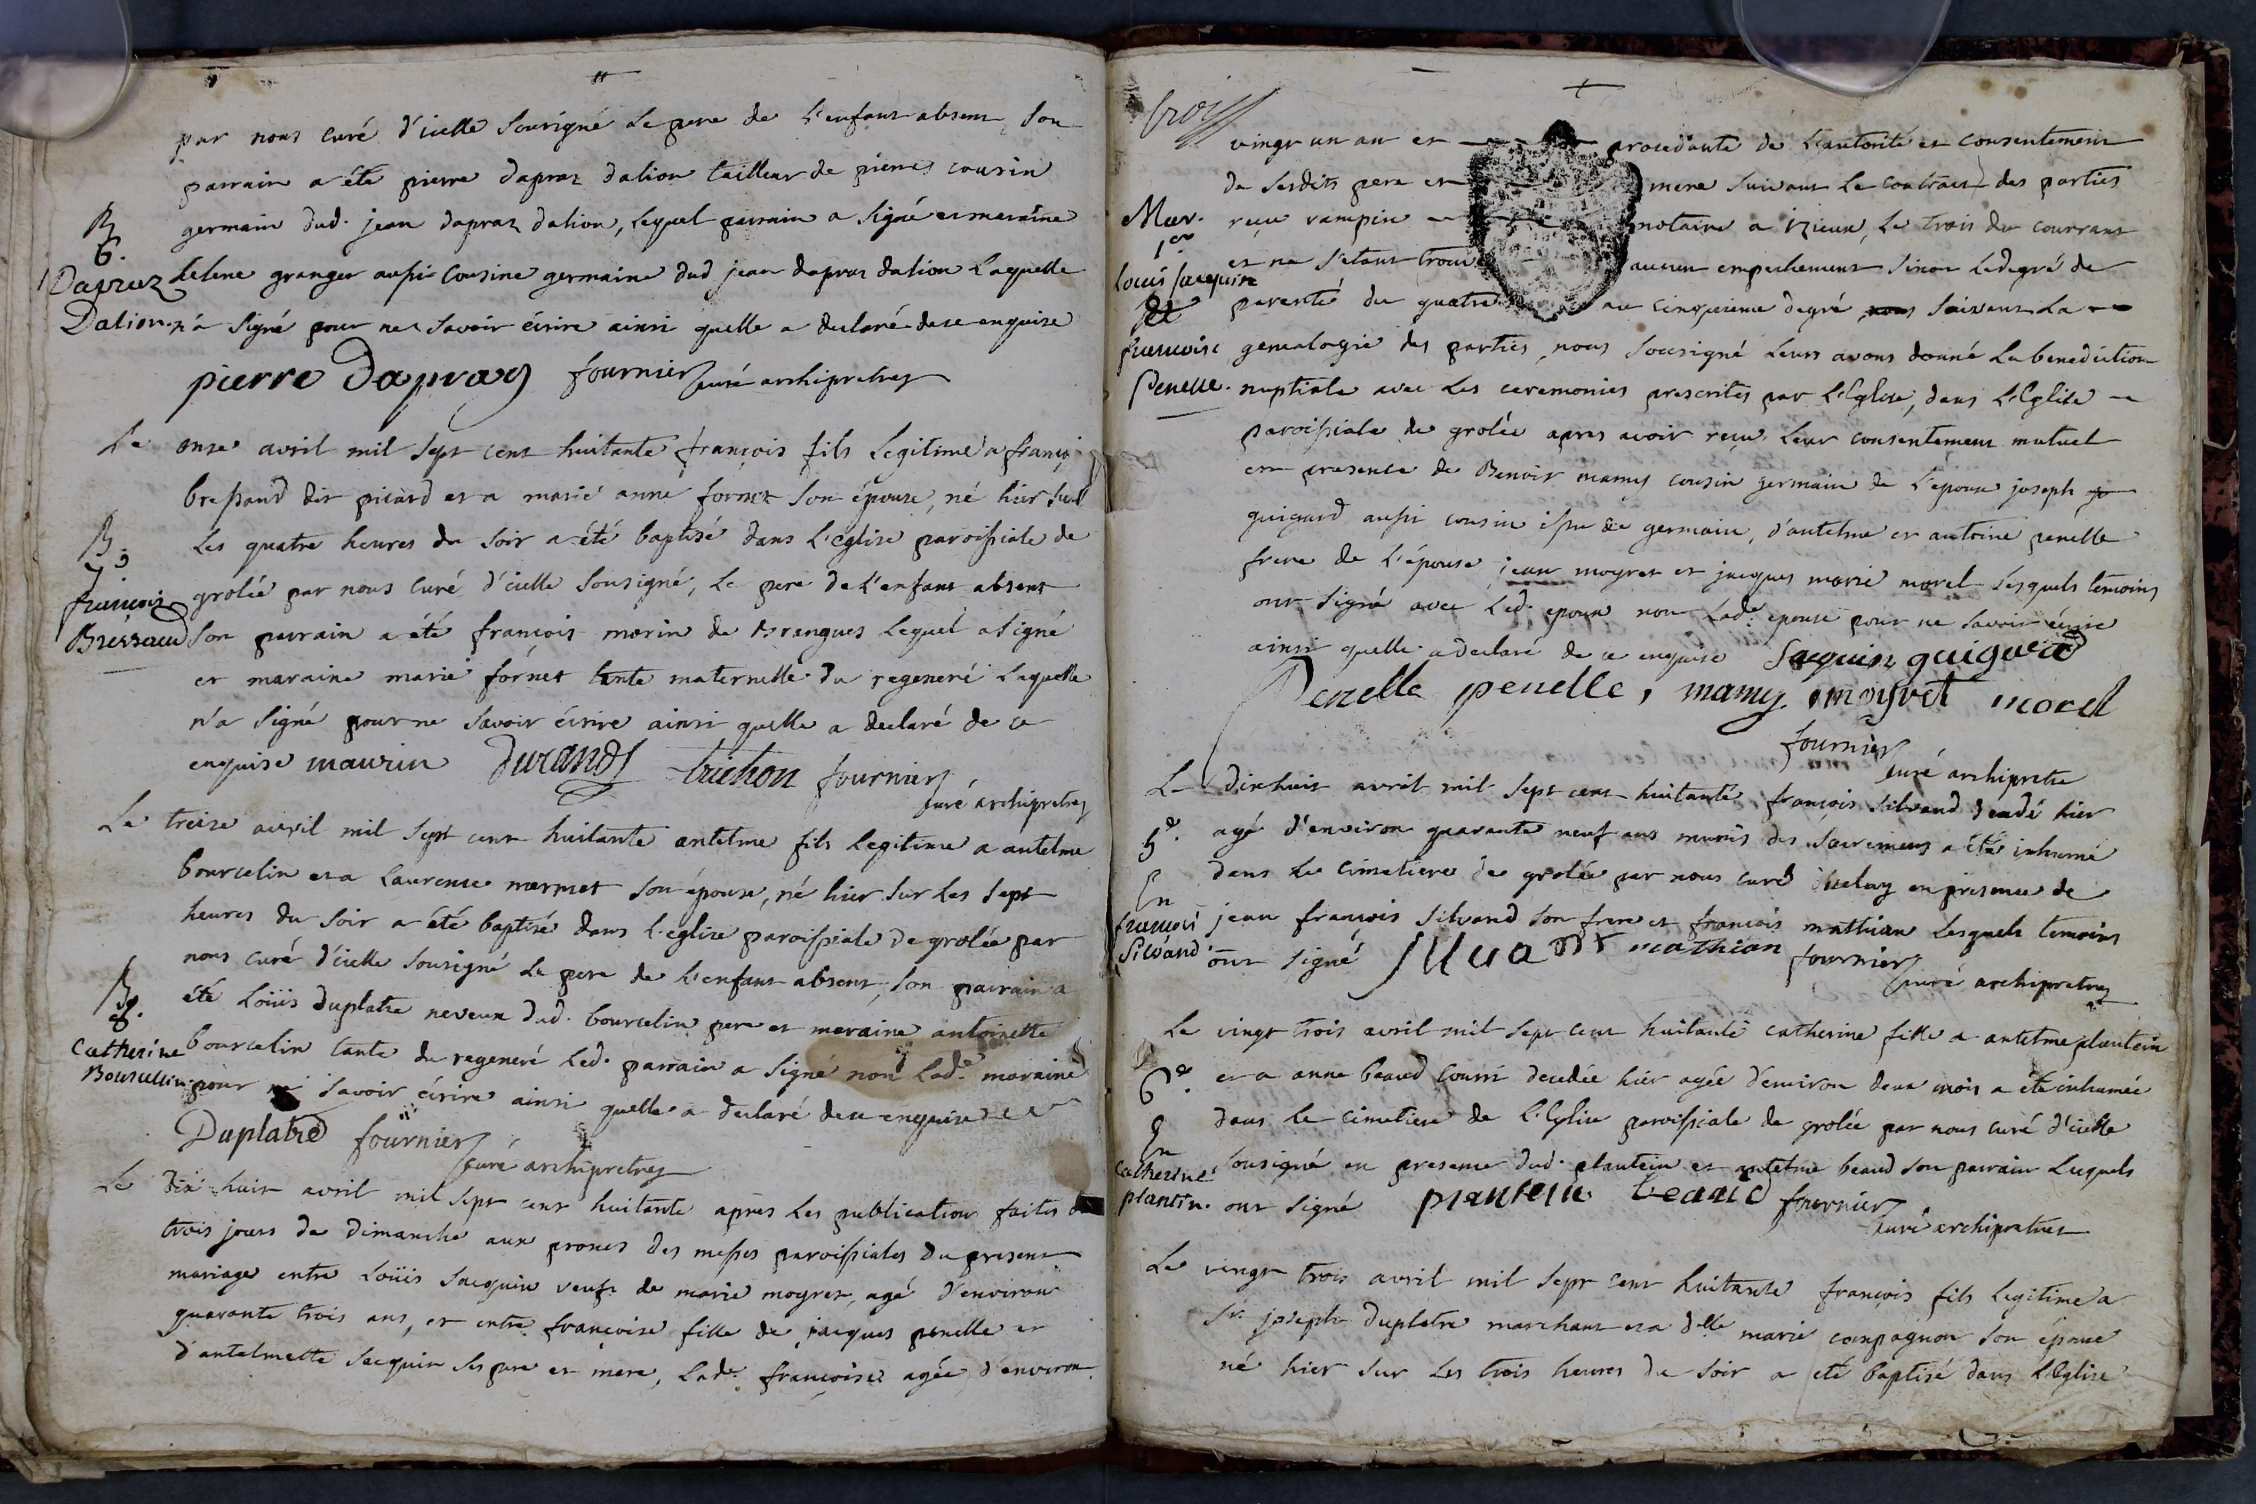 par nous curé d'icelle sousigné le pere de l'enfant absent, son
parrain a été pierre dapraz dalion tailleur de pierres cousin
germain dud. jean dapraz dalion, lequel parrain a signé et maraine
helene granger aussi cousine germaine dud jean dapraz dalion laquelle
n'a signé pour ne savoir écrire ainsi quelle a declaré de ce enquise
B
6.
Dapraz
Dalion
pierre Dapraz fournier curé archipretre
Le onze avril mil sept cent huitante françois fils legitime a françois
bressand dit picard et a marie anne fornet son épouse, né hier sur
les quatre heures du soir a été baptisé dans l'eglise paroissiale de
grolée par nous curé d'icelle sousigné, le pere de l'enfant absent
son parrain a été françois morin de Brangues lequel a signé
et maraine marie fornet tante maternelle du regeneré laquelle
n'a signé pour ne savoir écrire ainsi quelle a declaré de ce
enquise maurin Durand trichon fournier
curé archipretre
B.
7.
françois
Bressand
Le treize avril mil sept cent huitante antelme fils legitime a antelme
bourcelin et a laurence mermet son épouse, né hier sur les sept
heures du soir a été baptisé dans l'eglise paroissiale de grolée par
nous curé d'icelle sousigné le pere de l'enfant absent, son parrain a
été Loüis duplatre neveux dud. bourcelin pere et maraine antoinette
bourcelin tante du regeneré led. parrain a signé non lad.e maraine
pour ne savoir écrire ainsi quelle a declaré de ce enquise
B.
8.
Catherine
Bourcellin
Duplatre fournier
curé archipretre
Le dix huit avril mil sept cent huitante apres les publications faites
trois jours de dimanche aux prones des messes paroissiales du present
mariage entre Loüis Jacquin veuf de marie moyret, agé d'environ
quarante trois ans, et entre françoise fille de jacques penelle et
d'antelmette jacquin ses pere et mere, lad.e françoise agée d'environ
vingt un an et procedante de l'autorité et consentement
de sesdits pere et mere suivant le contract des parties
reçu rampin notaire a izieux, le trois du courrant
et ne s'etant trouvé aucun empechement sinon le degré de
parenté du quatre au cinquieme degré suivant la
genealogie des parties, nous sousigné leurs avons donné la benediction
nuptiale avec les ceremonies prescrites par l'Eglise, dans l'Eglise
paroissiale de grolée apres avoir reçu leur consentement mutuel
en presence de Benoit mamy cousin germain de l'epoux joseph
guigard aussi cousin issu de germain, d'antelme et antoine penelle
frere de l'épouse jean moyret et jacques marie morel lesquels temoins
ont signé avec led. epoux non lad.e epouse pour ne savoir écrire
ainsi quelle a declaré de ce enquise Jaquin guiguard
Penelle penelle, mamy moyret morel
fournier
curé archipretre
Mar.
1er
Louis Jacquin
et
francoise
Penelle.
Le dixhuit avril mil sept cent huitante françois silvand decedé hier
agé d'environ quarante neuf ans munis des sacremens a été inhumé
dans le cimetiere de grolée par nous curé en presence de
jean françois silvand son frere et françois mathian lesquels temoins
ont signé mathian fournier
curé archipretre
5e.
En
francois
Silvand
Le vingt trois avril mil sept cent huitante catherine fille a antelme plantein
et a anne beaud decedée hier agée d'environ deux mois a été inhumée
dans le cimetiere de l'Eglise paroissiale de grolée par nous curé d'icelle
sousigné en presence dud. plantein et antelme beaud son parrain lesquels
ont signé plantein beaud fournier
curé archipretre
6e.
En
catherine
plantin.
Le vingt trois avril mil sept cent huitante françois fils legitime a
Sr. joseph duplatre marchant et a dlle marie compagnon son épouse
né hier sur les trois heures du soir a été baptisé dans l'Eglise